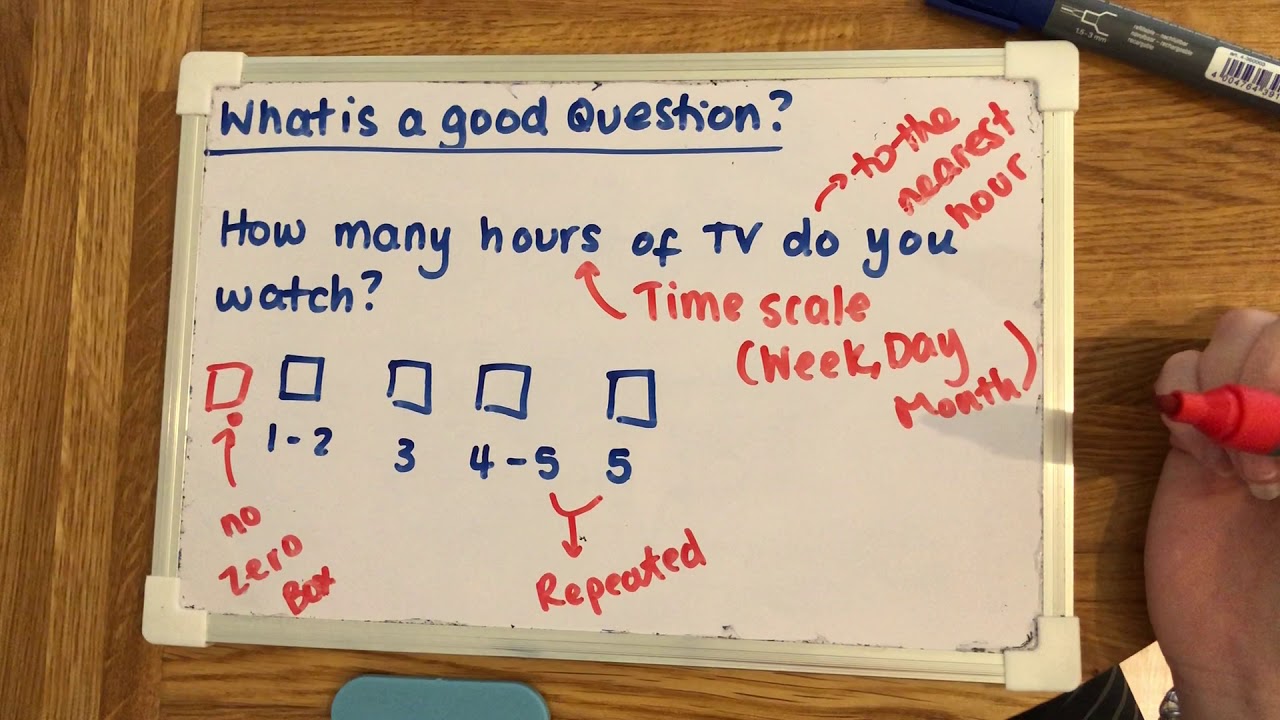 What is a good Question?
to the
nearest
hour
How many hours of TV do you
watch?
Time scale
(Week, Day
Month)
1-2 3 4-5 5
no
zero
Box
Repeated
1.5-3 mm